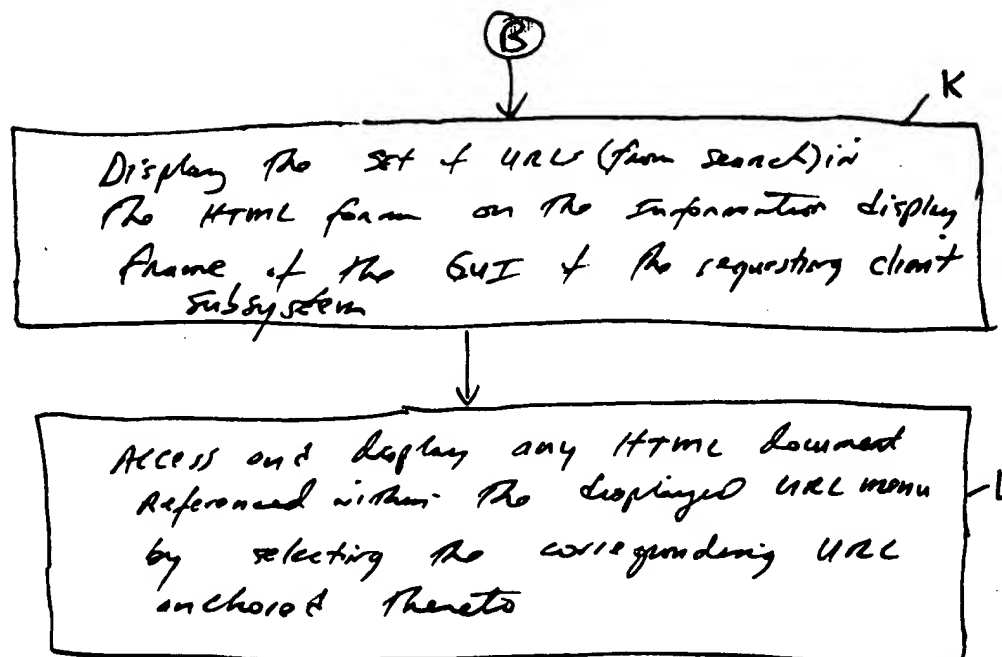 B
K
Display the set of URLs (from search) in
the HTML form on the Information display
frame of the GUI of the requesting client
subsystem
Access and display any HTML document
Referenced within the displayed URL menu
by selecting the corresponding URL
anchored thereto
L